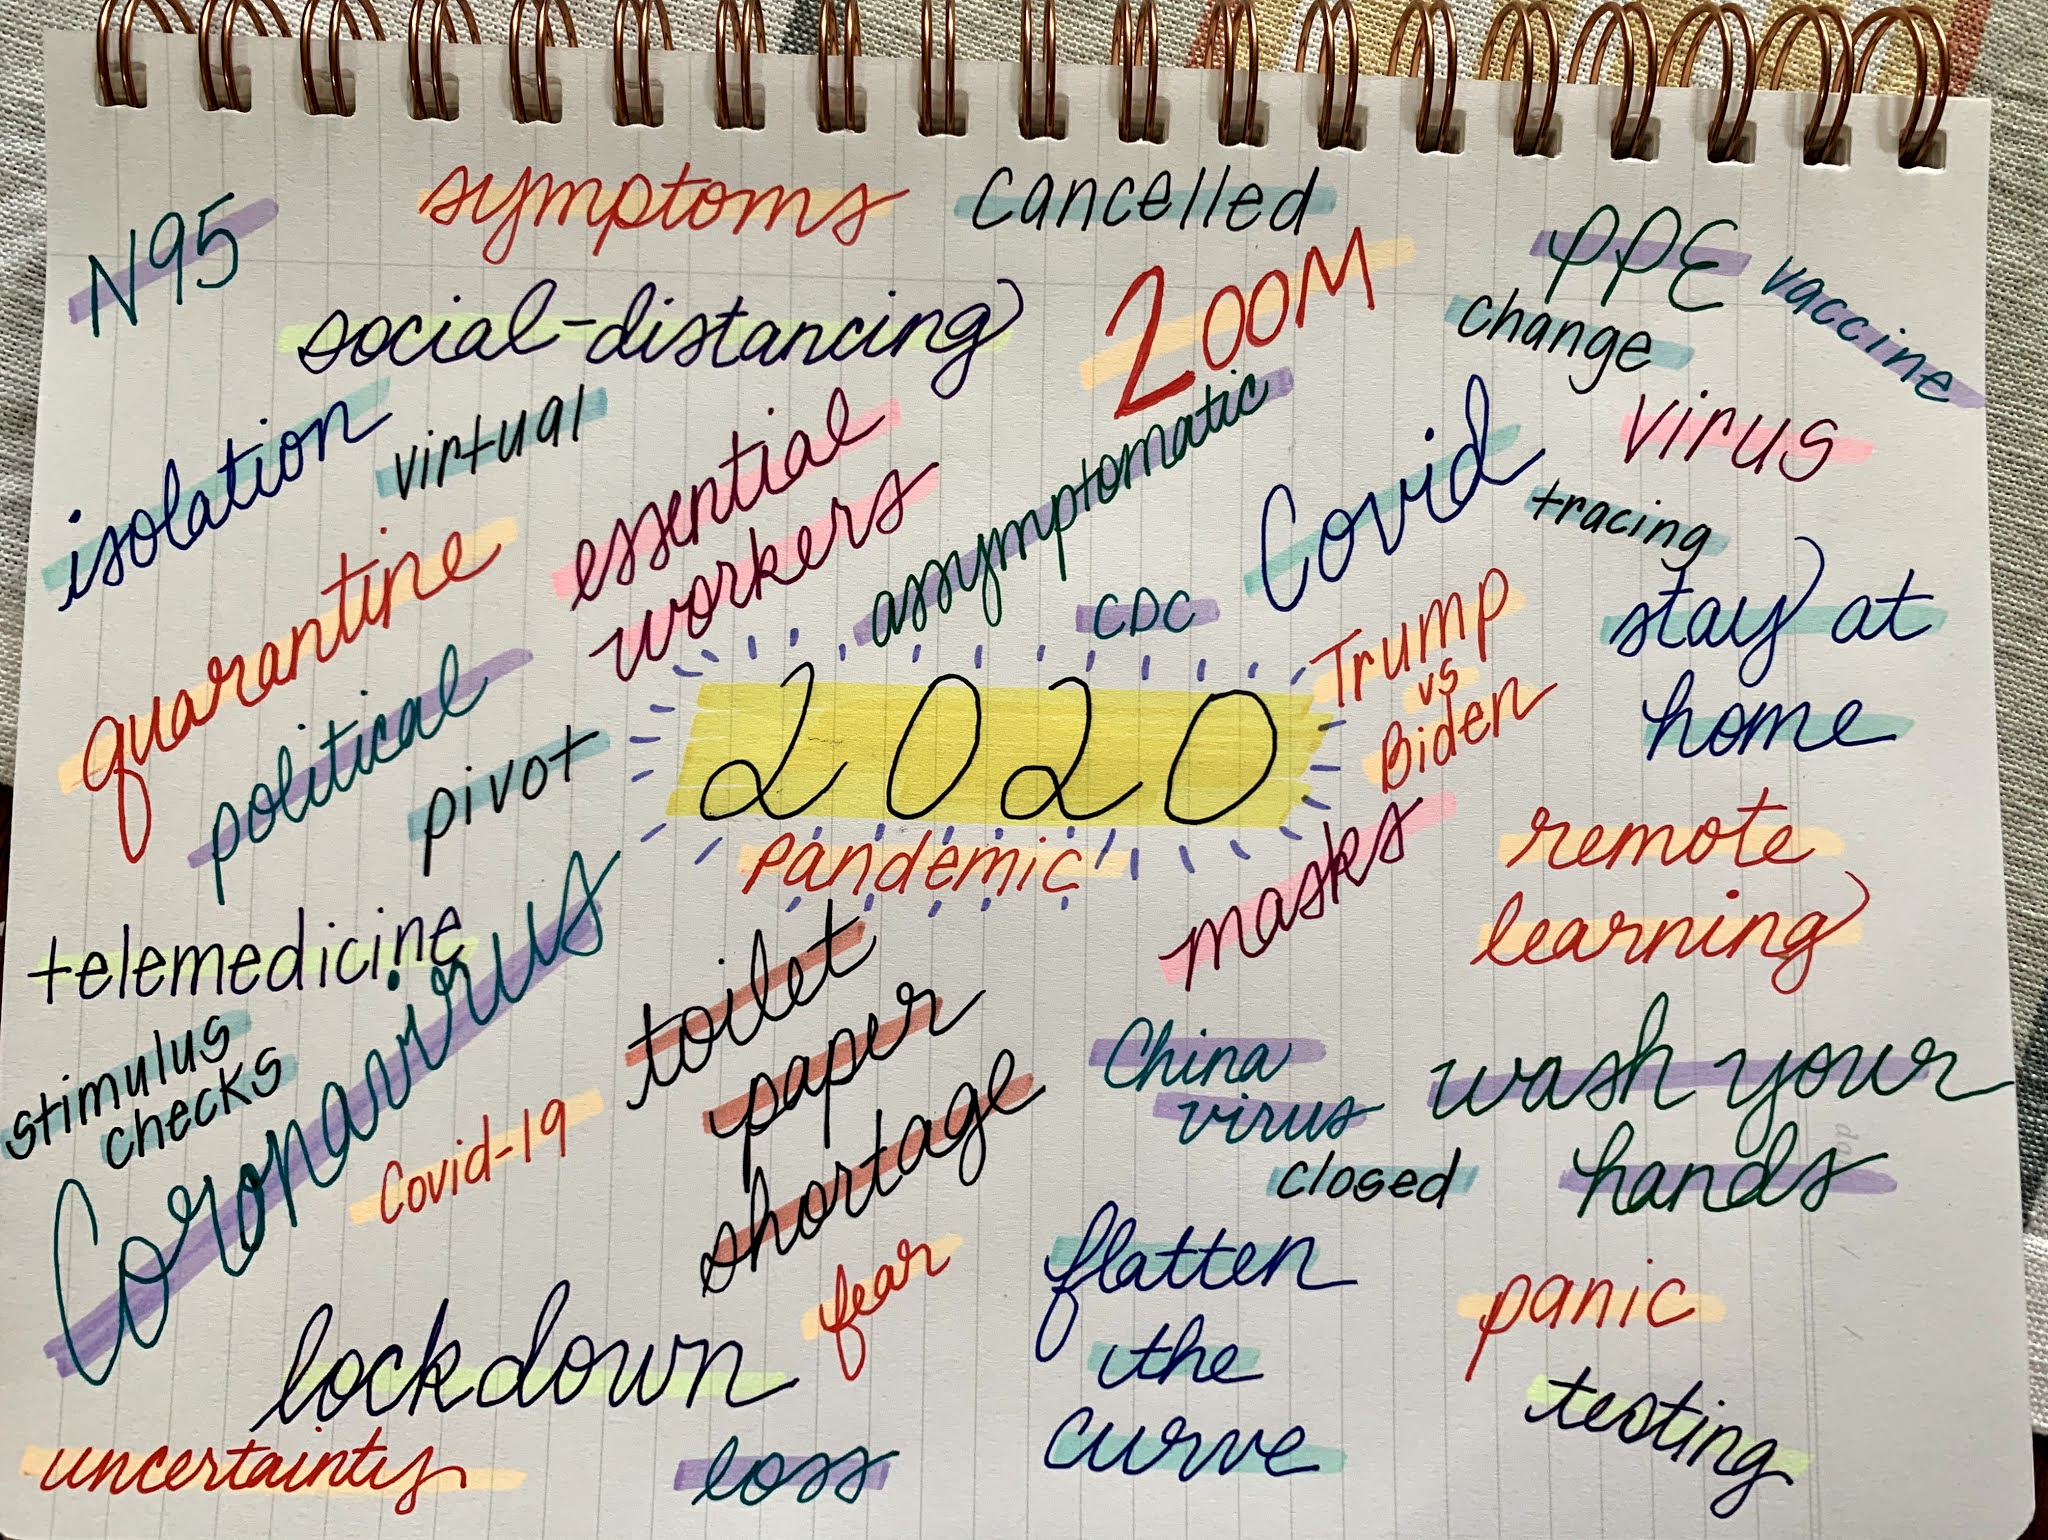 symptoms
cancelled
N95
PPE
vaccine
social-distancing
ZOOM
change
isolation
virtual
essential
workers
assymptomatic
Covid
virus
tracing
quarantine
CDC
Trump
vs
Biden
stay at
home
political
pivot
2020
pandemic
masks
remote
learning
telemedicine
Coronavirus
toilet
paper
shortage
stimulus
checks
Covid-19
China
virus
closed
wash your
hands
fear
flatten
the
curve
panic
lockdown
testing
uncertainty
loss